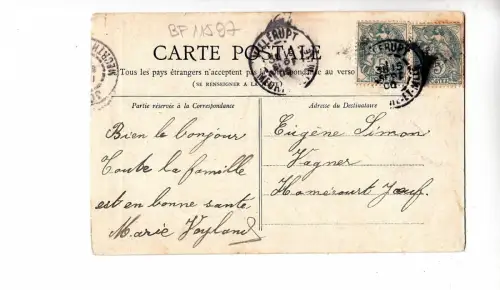 BF 11597
CARTE POSTALE
Tous les pays étrangers n'acceptent pas la correspondance au verso
(SE RENSEIGNER A LA
Partie réservée à la Correspondance
Adresse du Destinataire
Bien le bonjour
Toute la famille
est en bonne santé
Marie Voyland
Eugène Simon
Vagner
Homécourt Jœuf